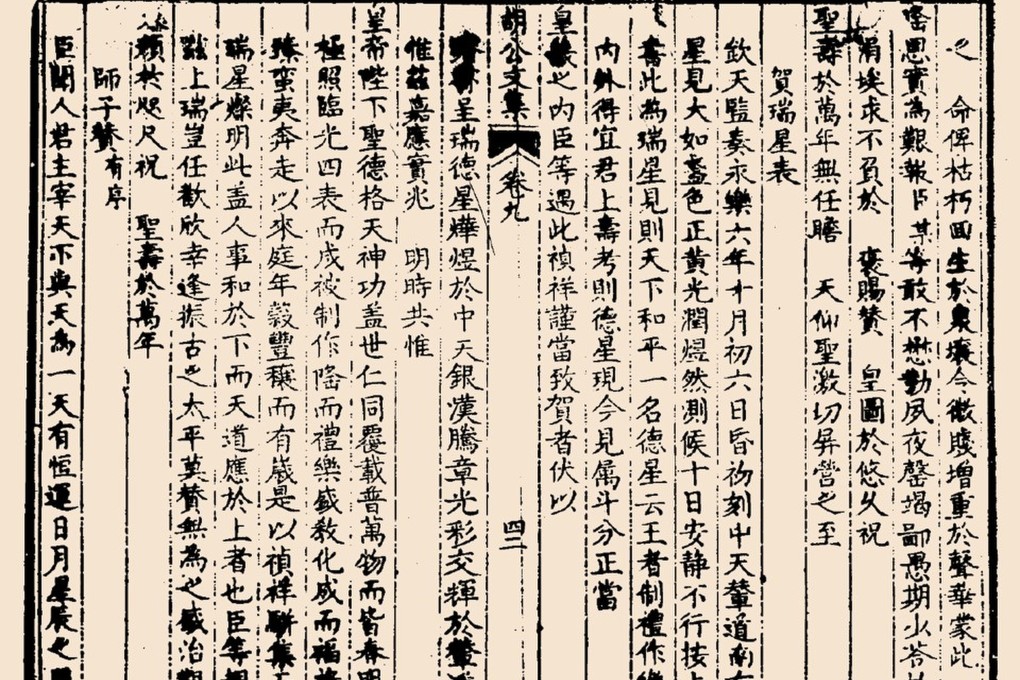 之 命俾枯朽回生於泉壤令微賤增重於聲華蒙此
恩實為艱報臣某等敢不懋勤夙夜罄竭鄙愚期少答
涓埃求不負於 褒賜贊 皇圖於悠久祝
聖壽於萬年無任瞻 天仰聖激切屏營之至
賀瑞星表
欽天監奏永樂六年十月初六日昏初刻中天輦道南
星見大如盞色正黃光潤煜然測候十日安靜不行按
奏此為瑞星見則天下和平一名德星云王者制禮作樂
內外得宜君上壽考則德星現今見属斗分正當
皇畿之內臣等遇此禎祥謹當致賀者伏以
胡公文集 卷九 四二
呈瑞德星燁煜於中天銀漢騰章光彩交輝於
惟茲嘉應實兆 明時共惟
皇帝陛下聖德格天神功盖世仁同覆載普萬物而皆春明
極照臨光四表而咸被制作隆而禮樂盛教化成而福
臻蛮夷奔走以來庭年穀豐穰而有嵗是以禎祥駢集
瑞星燦明此盖人事和於下而天道應於上者也臣等
上瑞豈任歡欣幸逢振古之太平莫贊無為之盛治
顏共咫尺祝 聖壽於萬年
師子贊有序
臣聞人君主宰天下與天為一天有恒運日月星辰之